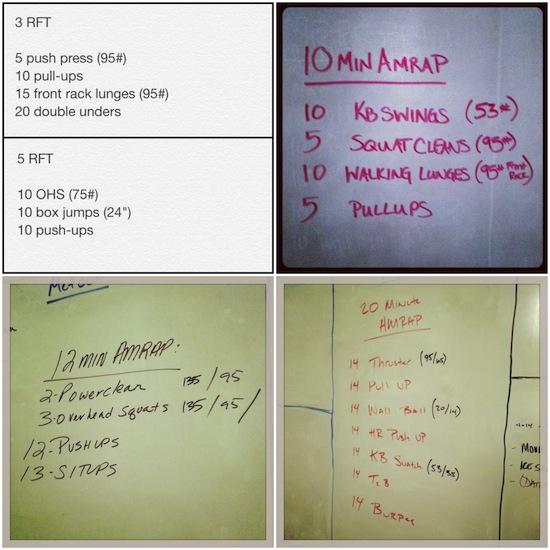 3 RFT
5 push press (95#)
10 pull-ups
15 front rack lunges (95#)
20 double unders
5 RFT
10 OHS (75#)
10 box jumps (24")
10 push-ups
10 MIN AMRAP
10 KB SWINGS (53#)
5 SQUAT CLEANS (95#)
10 WALKING LUNGES (95# Front Rack)
5 PULLUPS
12 MIN AMRAP:
2-Powerclean 135/95
3-overhead squats 135/95/
12-PUSHUPS
13-SITUPS
20 Minute
AMRAP
14 Thruster (95/65)
14 Pull UP
14 Wall Ball (20/14)
14 HR Push UP
14 KB Snatch (53/35)
14 T2B
14 Burpee